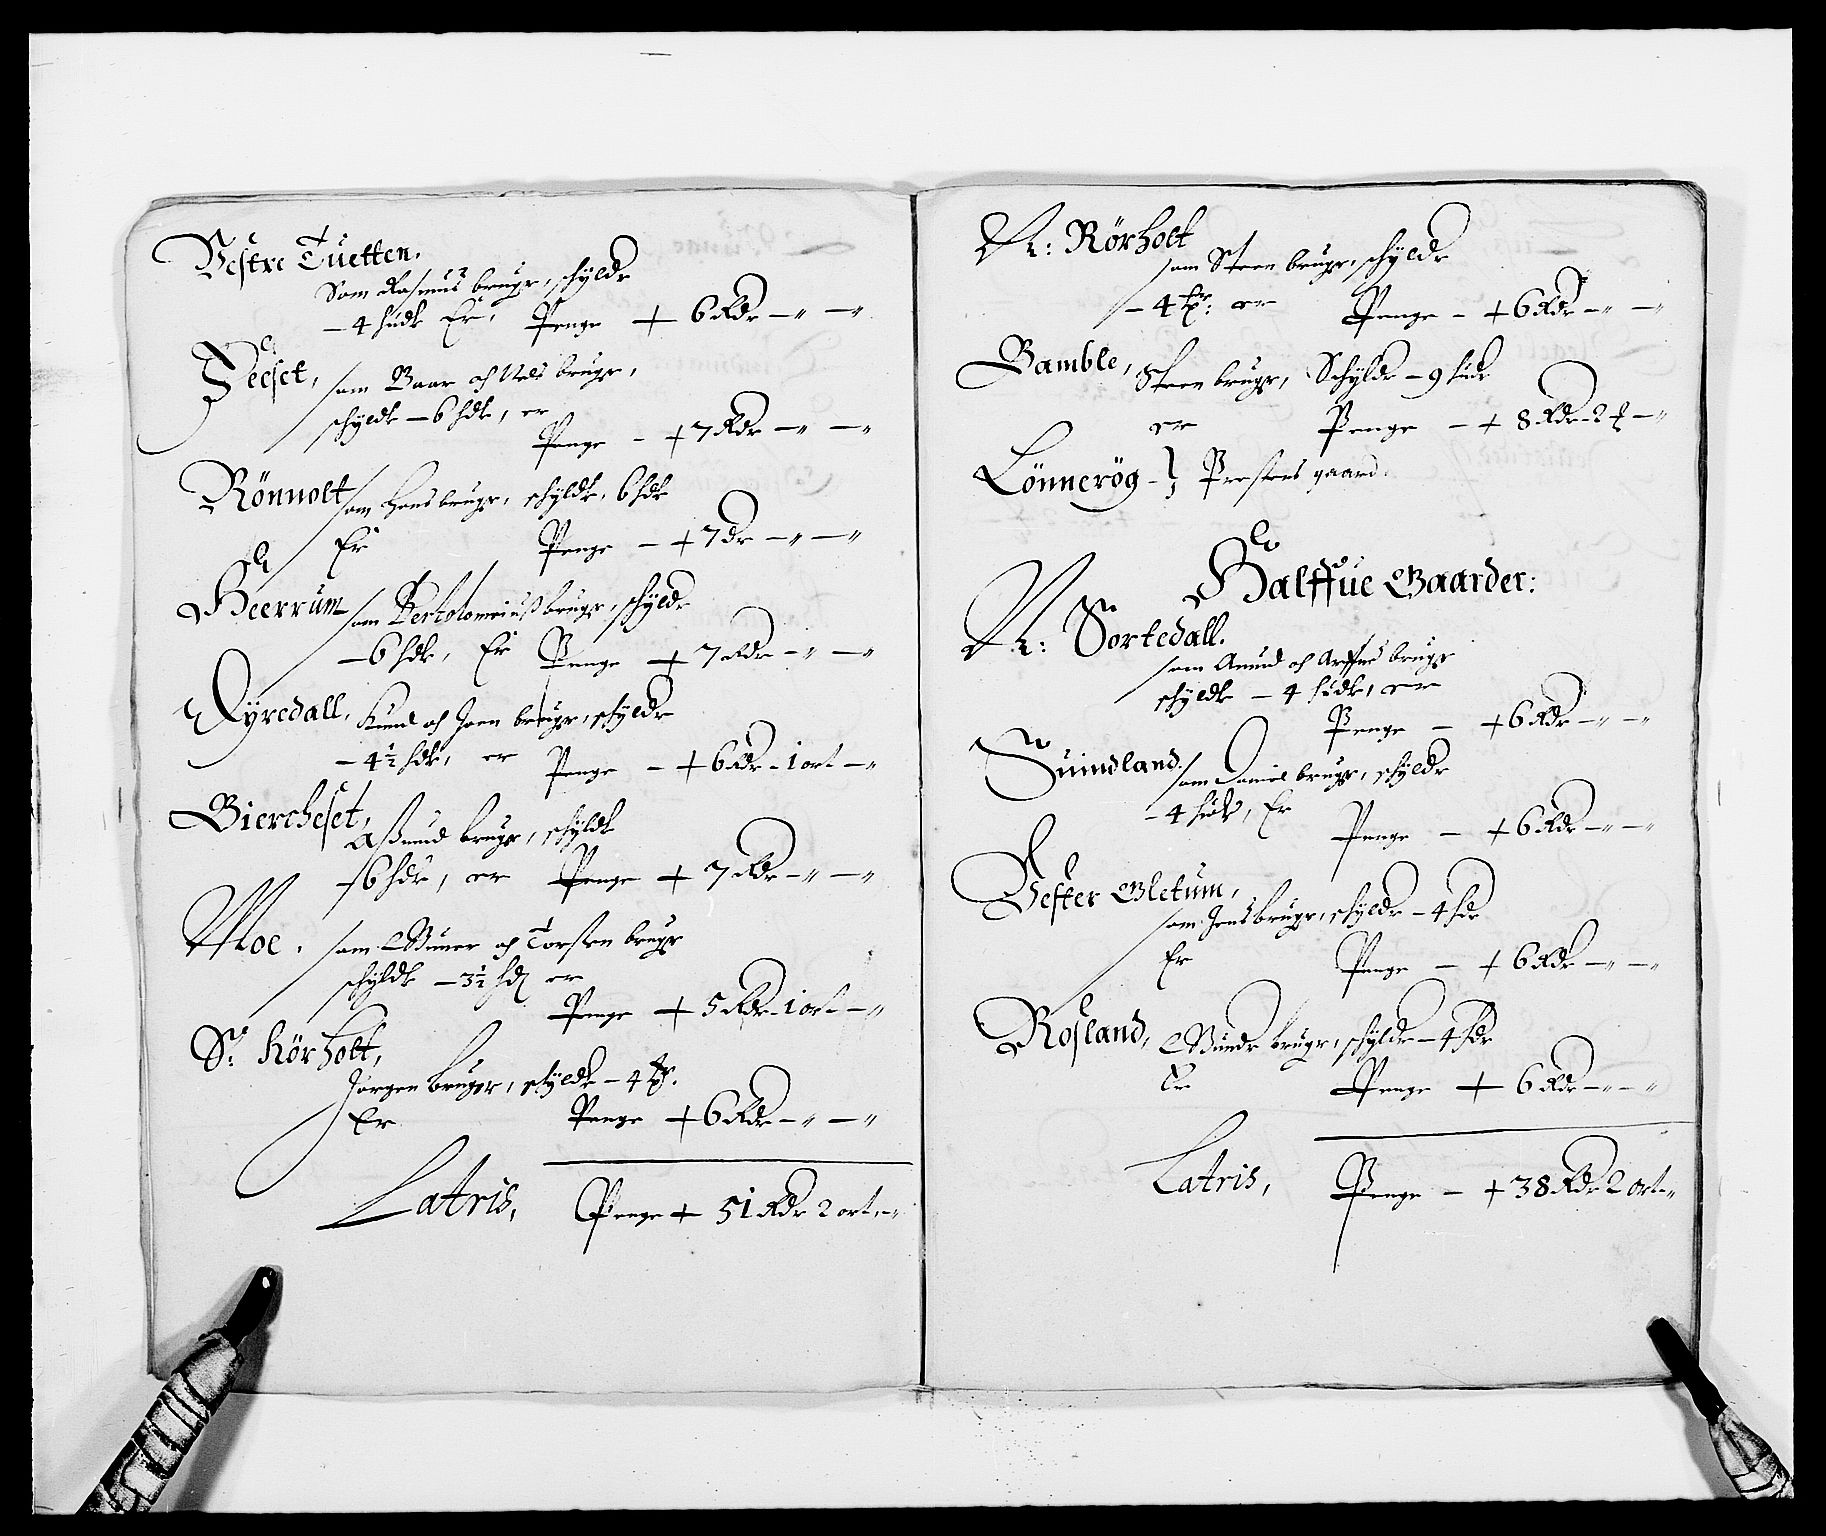 Vestre Tuetten,
Som Rasmus bruger, schylder
– 4 huder Er, Penge + 6 Rdr – „ – „
Feeset, som Baar och Nels bruger,
schylder – 6 hder, er
Penge – + 7 Rdr – „ – „
Rönnolt som Hans bruger, schylder, 6 hder
Er Penge – + 7 dr – „ – „
Heerrum som Bertolomeiuß bruger, schylder
– 6 hder, Er Penge + 7 Rdr – „ – „
Dyredall, Knud och Joen bruger, schylder
– 4½ hder, er Penge – + 6 Rdr – 1 ort – „
Biercheset, Aßmund bruger, schylder
– 6 hder, er Penge + 7 Rdr – „ – „
Moe, som Gunner och Torsten bruger
schylder – 3½ hd er
Penge + 5 Rdr – 1 ort – „
Sr: Rörholt,
Jörgen bruger, schylder – 4
Er Penge + 6 Rdr – „ – „
Latris, Penge + 51 Rdr 2 ort – „
N: Rörholt
som Steen bruger, schylder
– 4 er Penge – + 6 Rdr – „ – „
Bamble, Steen bruger, Schylder – 9 hder
er Penge – + 8 Rdr – 2 – „
Lönnerög – Prestens gaard.
Halffue Gaarder:
N: Sortedall.
som Amund och bruger
schylder – 4 huder, er
Penge – + 6 Rdr – „ – „
Suindland, som Daniel bruger, schylder
– 4 huder, Er
Penge – + 6 Rdr – „ – „
Vester Gletum,
som Jens bruger, schylder – 4 hdr
Er Penge – + 6 Rdr – „ – „
Rosland, Gunder bruger, schylder – 4 hdr
Er Penge + 6 Rdr – „ – „
Latris, Penge – + 38 Rdr 2 ort – „